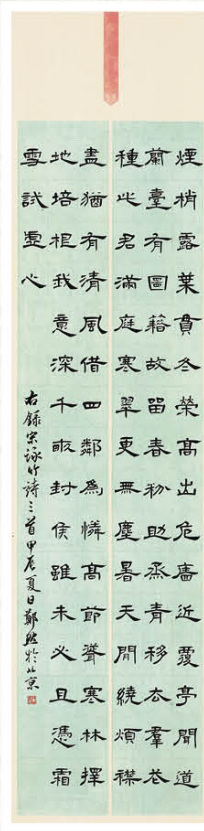 煙梢露葉貫冬榮高出危牆近覆亭聞道
蘭臺有圖籍故留春粉助蒸青移去羣花
種此君滿庭寒翠更無塵暑天閒繞煩襟
盡猶有清風借四鄰為憐高節聳寒林擇
地培根我意深千畝封侯雖未必且憑霜
雪試虛心
右錄宋詠竹詩三首甲辰夏日鄭於北京